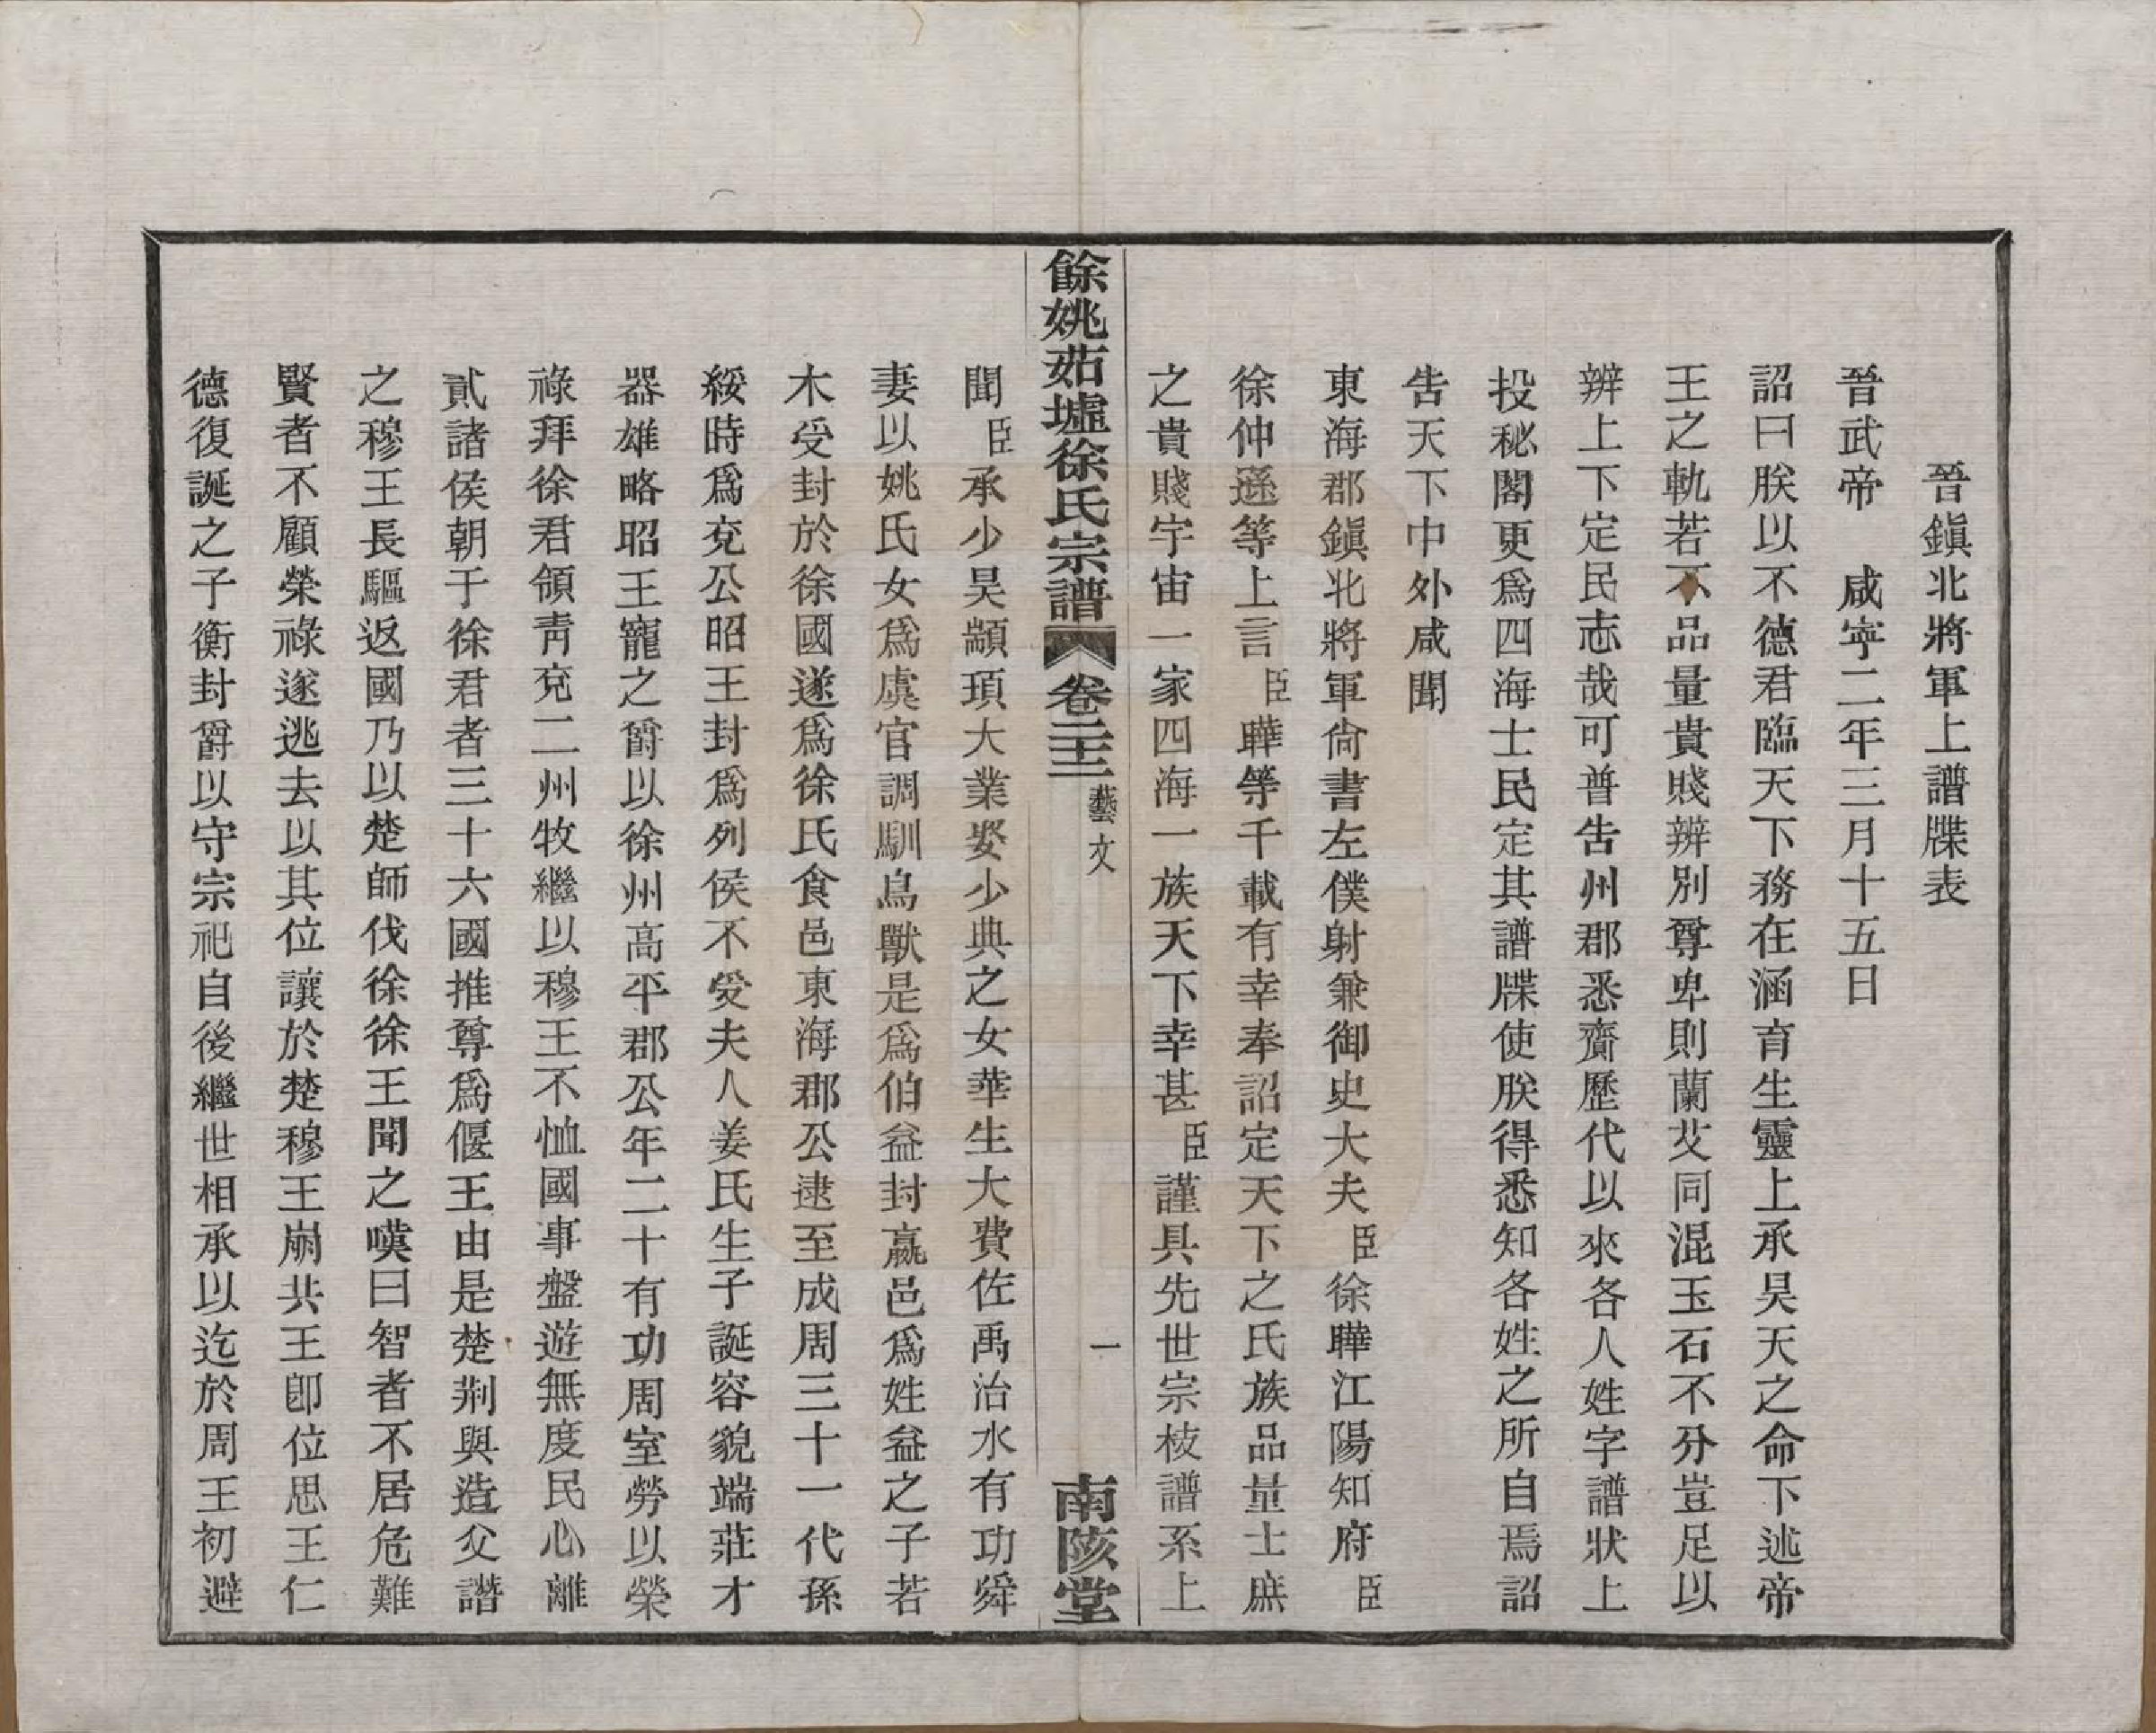 晉鎭北將軍上譜牒表
晉武帝　咸寧二年三月十五日
詔曰朕以不德君臨天下務在涵育生靈上承昊天之命下述帝
王之軌若不品量貴賤辨別尊卑則蘭艾同混玉石不分豈足以
辨上下定民志哉可普告州郡悉齊歷代以來各人姓字譜狀上
投秘閣更爲四海士民定其譜牒使朕得悉知各姓之所自焉詔
告天下中外咸聞
東海郡鎭北將軍尙書左僕射兼御史大夫臣徐曄江陽知府臣
徐仲遜等上言臣曄等千載有幸奉詔定天下之氏族品量士庶
之貴賤宇宙一家四海一族天下幸甚臣謹具先世宗枝譜系上
餘姚茹墟徐氏宗譜　卷二十三　藝文　一　南陔堂
聞臣承少昊顓頊大業娶少典之女華生大費佐禹治水有功舜
妻以姚氏女爲虞官調馴鳥獸是爲伯益封嬴邑爲姓益之子若
木受封於徐國遂爲徐氏食邑東海郡公逮至成周三十一代孫
綏時爲兗公昭王封爲列侯不受夫人姜氏生子誕容貌端莊才
器雄略昭王寵之爵以徐州高平郡公年二十有功周室勞以榮
祿拜徐君領靑兗二州牧繼以穆王不恤國事盤遊無度民心離
貳諸侯朝于徐君者三十六國推尊爲偃王由是楚荆與造父譖
之穆王長驅返國乃以楚師伐徐徐王聞之嘆曰智者不居危難
賢者不顧榮祿遂逃去以其位讓於楚穆王崩共王卽位思王仁
德復誕之子衡封爵以守宗祀自後繼世相承以迄於周王初避